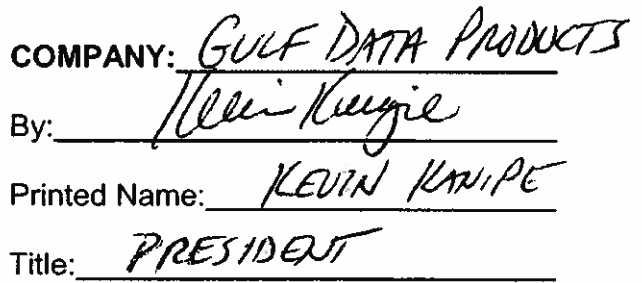 COMPANY: GULF DATA PRODUCTS
By:
Printed Name: KEVIN KANIPE
Title: PRESIDENT